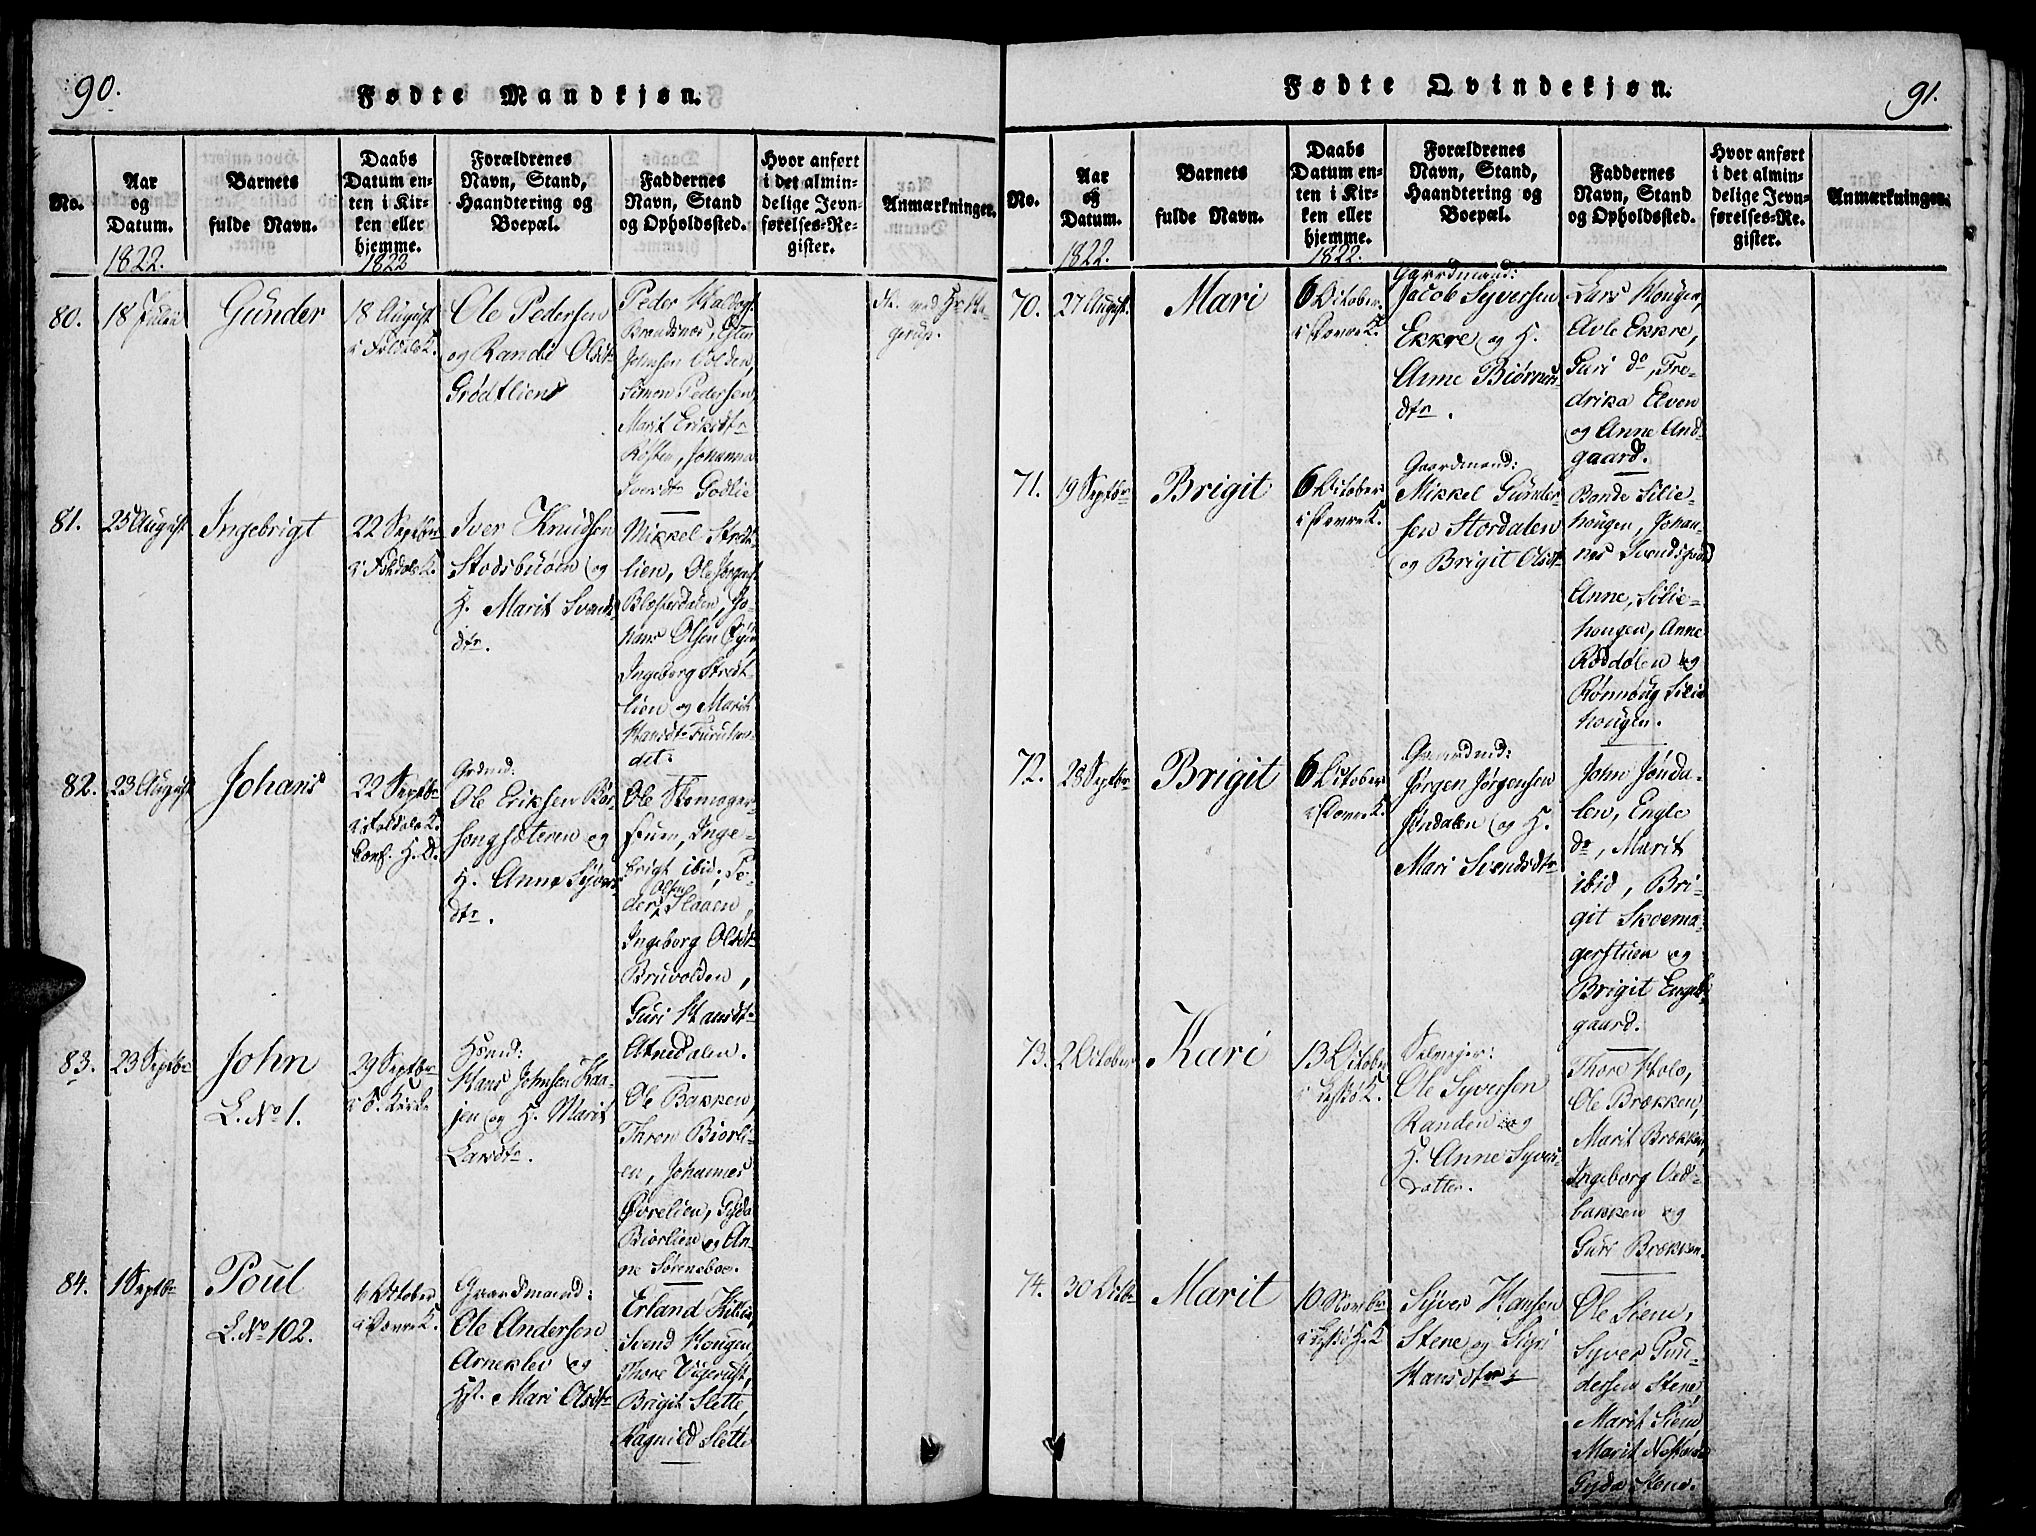 90.
Fødte Mandkjøn.
No.
Aar
og
Datum.
1822.
Barnets
fulde Navn.
Daabs
Datum en-
ten i Kir-
ken eller
hjemme.
1822
Forældrenes
Navn, Stand,
Haandtering og
Boepæl.
Faddernes
Navn, Stand
og Opholdssted.
Hvor anført
i det almin-
delige Jevn-
førelses-Re-
gister.
Anmærkninger.
80.
18 Julii
Gunder
18 August
i Foldals K.
Ole Pedersen
og Randi Olsdtr
Grødtlien
Peder
Brendsmoe, Esten
Johnsen Volden,
Simon Pedersen
Marit Eriksdtr
Rosten, Johanna
Iversdtr Godlie
81.
25 August
Ingebrigt
22 Septbr
i Foldals K.
Iver Knudsen
Stodsbuøien og
H. Marit Svends
dtr.
Mikkel Stredt-
lien, Ole Jørgens
Blæsterdalen, Jo-
hans Olsen
Ingeborg Stredt
lien og Marit
Hansdtr Furuhov-
det.
82.
23 August
Johans
22 Septbr
i Foldals K.
Conf. H. D.
Grdmd:
Ole Eriksen Bør-
songsæteren og
H. Anne Syvers
dtr.
Ole Skomager
stuen, Inge-
brigt ibid, Pe-
der Olsen Slaaen,
Ingeborg Olsdtr
Bruvolden,
Guri Hansdtr
Atnedalen.
83.
23 Septbr
John
L. No 1.
29 Septbr
i S. Kirke
Hsmd:
Hans Johnsen Kaa-
jen og H. Marit
Larsdtr.
Ole Bakken,
Thron Biorli-
en, Johannes
Øvrelien, Gyda
Biorlien og An-
ne Sørensboe.
84.
1 Septbr
Poul
L. No 102.
6 October
i Dovre K.
Gaardmand:
Ole Andersen
Arneklev og
Hst. Mari Olsdtr
Erland Killie,
Svend Hougen,
Thore Vigerust,
Brigit Slette,
Ragnild Slette
91.
Fødte Qvindekjøn.
No.
Aar
og
Datum.
1822.
Barnets
fulde Navn.
Daabs
Datum en-
ten i Kir-
ken eller
hjemme.
1822.
Forældrenes
Navn, Stand,
Haandtering og
Boepæl.
Faddernes
Navn, Stand
og Opholdssted.
Hvor anført
i det almin-
delige Jevn-
førelses-Re-
gister.
Anmærkninger.
70.
27 August
Mari
6 October
i Dovre K.
Gaardmand:
Jacob Syversen
Ekkre og H.
Anne Biørns
dtr.
Lars Hougen,
Avle Ekkre,
Guri do, Fre-
drika Elven
og Anne And-
gaard.
71.
19 Septbr
Brigit
6 October
i Dovre K.
Gaardmand:
Mikkel Gunder-
sen Stordalen
og Brigit Olsdtr
Bonde Lilie-
hougen, Johan-
nes
Anne Lilie-
hougen, Anne
Roddølen og
Rønnoug Lilie
hougen.
72.
28 Septbr
Brigit
6 October
i Dovre K.
Gaardmd:
Jørgen Jørgensen
Jøndalen og H.
Mari Svendsdtr
John Jønda-
len, Engle
do, Marit
ibid, Bri-
git Skoema-
gerstuen og
Brigit Engels-
gaard.
73.
2 October
Kari
13 October
i Lesiø K.
Selveyer:
Ole Syversen
Randen og
H. Anne Syvers-
datter.
Thore Holo,
Ole Brækken,
Marit Brækken,
Ingeborg Ved-
bakken og
Guri Brækken.
74.
30 Octbr
Marit
10 Novbr
i Lesiø H. K
Syver Hansen
Stene og Sigri
Hansdtr
Ole Siem,
Syver Gun-
dersen Stene,
Marit Siem
Marit
Gyda Stene.